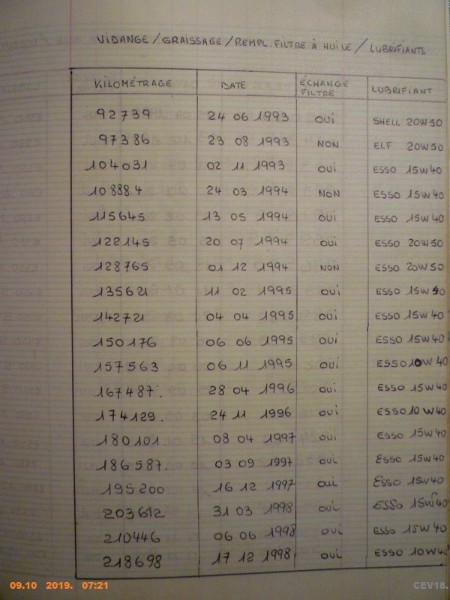 VIDANGE / GRAISSAGE / REMPL. FILTRE À HUILE / LUBRIFIANTS
KILOMÉTRAGE DATE ÉCHANGE FILTRE LUBRIFIANT
92739 24 06 1993 OUI SHELL 20W50
97386 23 08 1993 NON ELF 20W50
104031 02 11 1993 OUI ESSO 15W40
108884 24 03 1994 NON ESSO 15W40
115645 13 05 1994 OUI ESSO 15W40
122145 20 07 1994 OUI ESSO 20W50
128765 01 12 1994 NON ESSO 20W50
135621 11 02 1995 OUI ESSO 15W40
142721 04 04 1995 OUI ESSO 15W40
150176 06 06 1995 OUI ESSO 15W40
157563 06 11 1995 OUI ESSO 10W40
167487. 28 04 1996 OUI ESSO 15W40
174129. 24 11 1996 OUI ESSO 10W40
180101 08 04 1997 OUI ESSO 15W40
186587. 03 09 1997 OUI ESSO 15W40
195200 16 12 1997 OUI ESSO 15W40
203612 31 03 1998 OUI ESSO 15W40
210446 06 06 1998 OUI ESSO 15W40
218698 17 12 1998 OUI ESSO 10W40
09.10 2019. 07:21
CEV18.